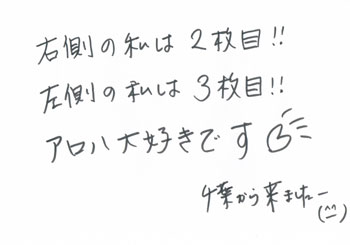 右側の私は2枚目!!
左側の私は3枚目!!
アロハ大好きです
千葉から来ましたー
(^^)